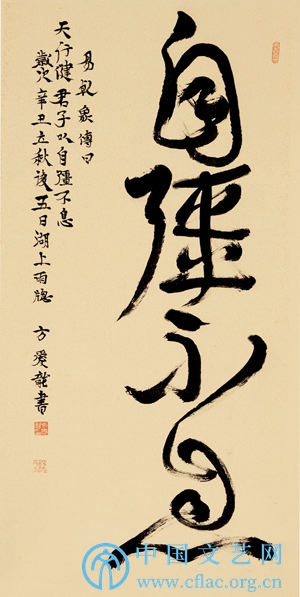 自彊不息
易乾象傳曰
天行健君子以自彊不息
歲次辛丑立秋後五日湖上雨窗
方愛龍書
中国文艺网
www.cflac.org.cn